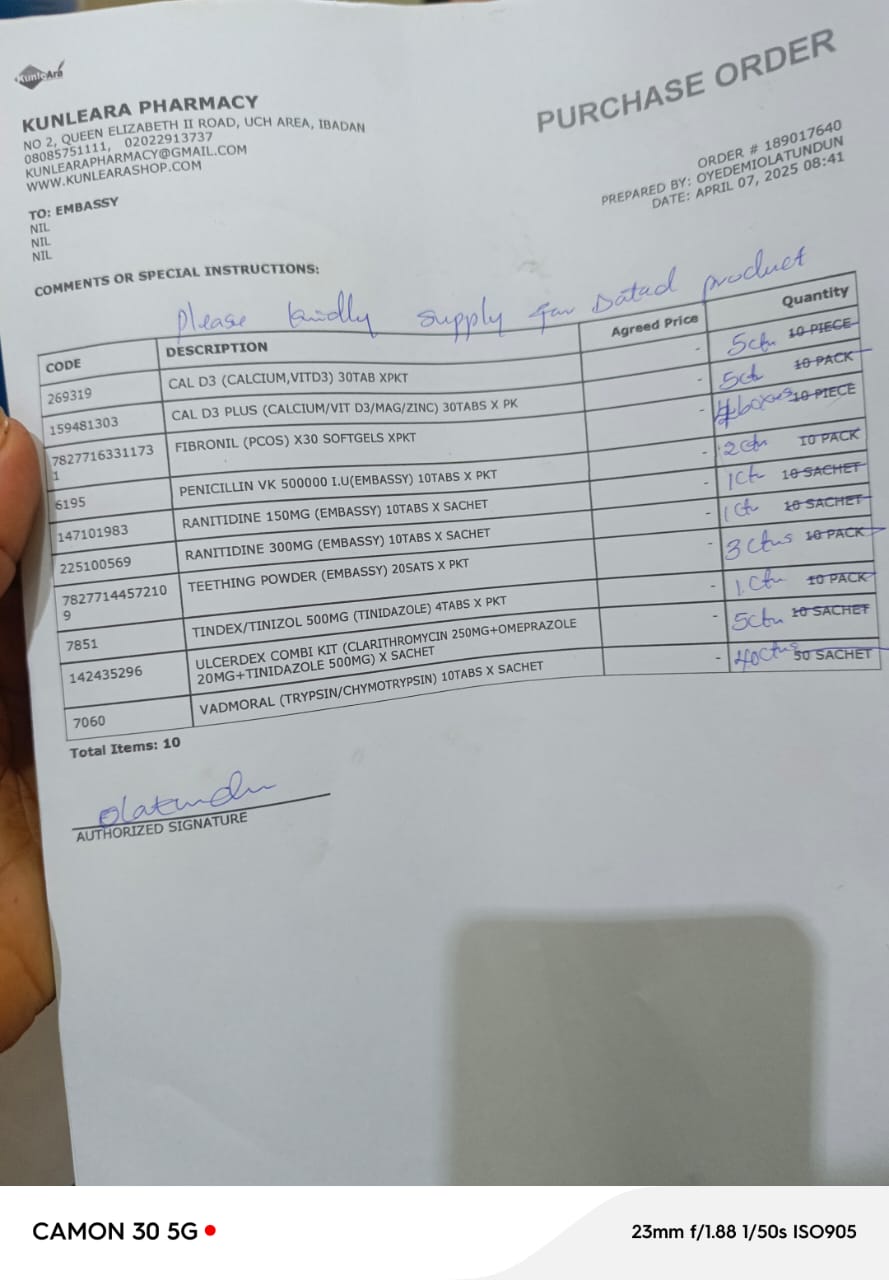 KunleAra
KUNLEARA PHARMACY
NO 2, QUEEN ELIZABETH II ROAD, UCH AREA, IBADAN
08085751111, 02022913737
KUNLEARAPHARMACY@GMAIL.COM
WWW.KUNLEARASHOP.COM
PURCHASE ORDER
ORDER # 189017640
PREPARED BY: OYEDEMIOLATUNDUN
DATE: APRIL 07, 2025 08:41
TO: EMBASSY
NIL
NIL
NIL
COMMENTS OR SPECIAL INSTRUCTIONS:
Please kindly supply far Datad product
CODE DESCRIPTION Agreed Price Quantity
269319 CAL D3 (CALCIUM,VITD3) 30TAB XPKT - 5ctn 10 PIECE
159481303 CAL D3 PLUS (CALCIUM/VIT D3/MAG/ZINC) 30TABS X PK - 5ct 10 PACK
7827716331173 FIBRONIL (PCOS) X30 SOFTGELS XPKT - 4boxes 10 PIECE
1
6195 PENICILLIN VK 500000 I.U(EMBASSY) 10TABS X PKT - 2ctn 10 PACK
147101983 RANITIDINE 150MG (EMBASSY) 10TABS X SACHET - 1ctn 10 SACHET
225100569 RANITIDINE 300MG (EMBASSY) 10TABS X SACHET - 1ctn 10 SACHET
7827714457210 TEETHING POWDER (EMBASSY) 20SATS X PKT - 3ctns 10 PACK
9
7851 TINDEX/TINIZOL 500MG (TINIDAZOLE) 4TABS X PKT - 1Ctn 10 PACK
142435296 ULCERDEX COMBI KIT (CLARITHROMYCIN 250MG+OMEPRAZOLE - 5ctn 10 SACHET
20MG+TINIDAZOLE 500MG) X SACHET
7060 VADMORAL (TRYPSIN/CHYMOTRYPSIN) 10TABS X SACHET - 40ctns 50 SACHET
Total Items: 10
Olatundun
AUTHORIZED SIGNATURE
CAMON 30 5G
23mm f/1.88 1/50s ISO905